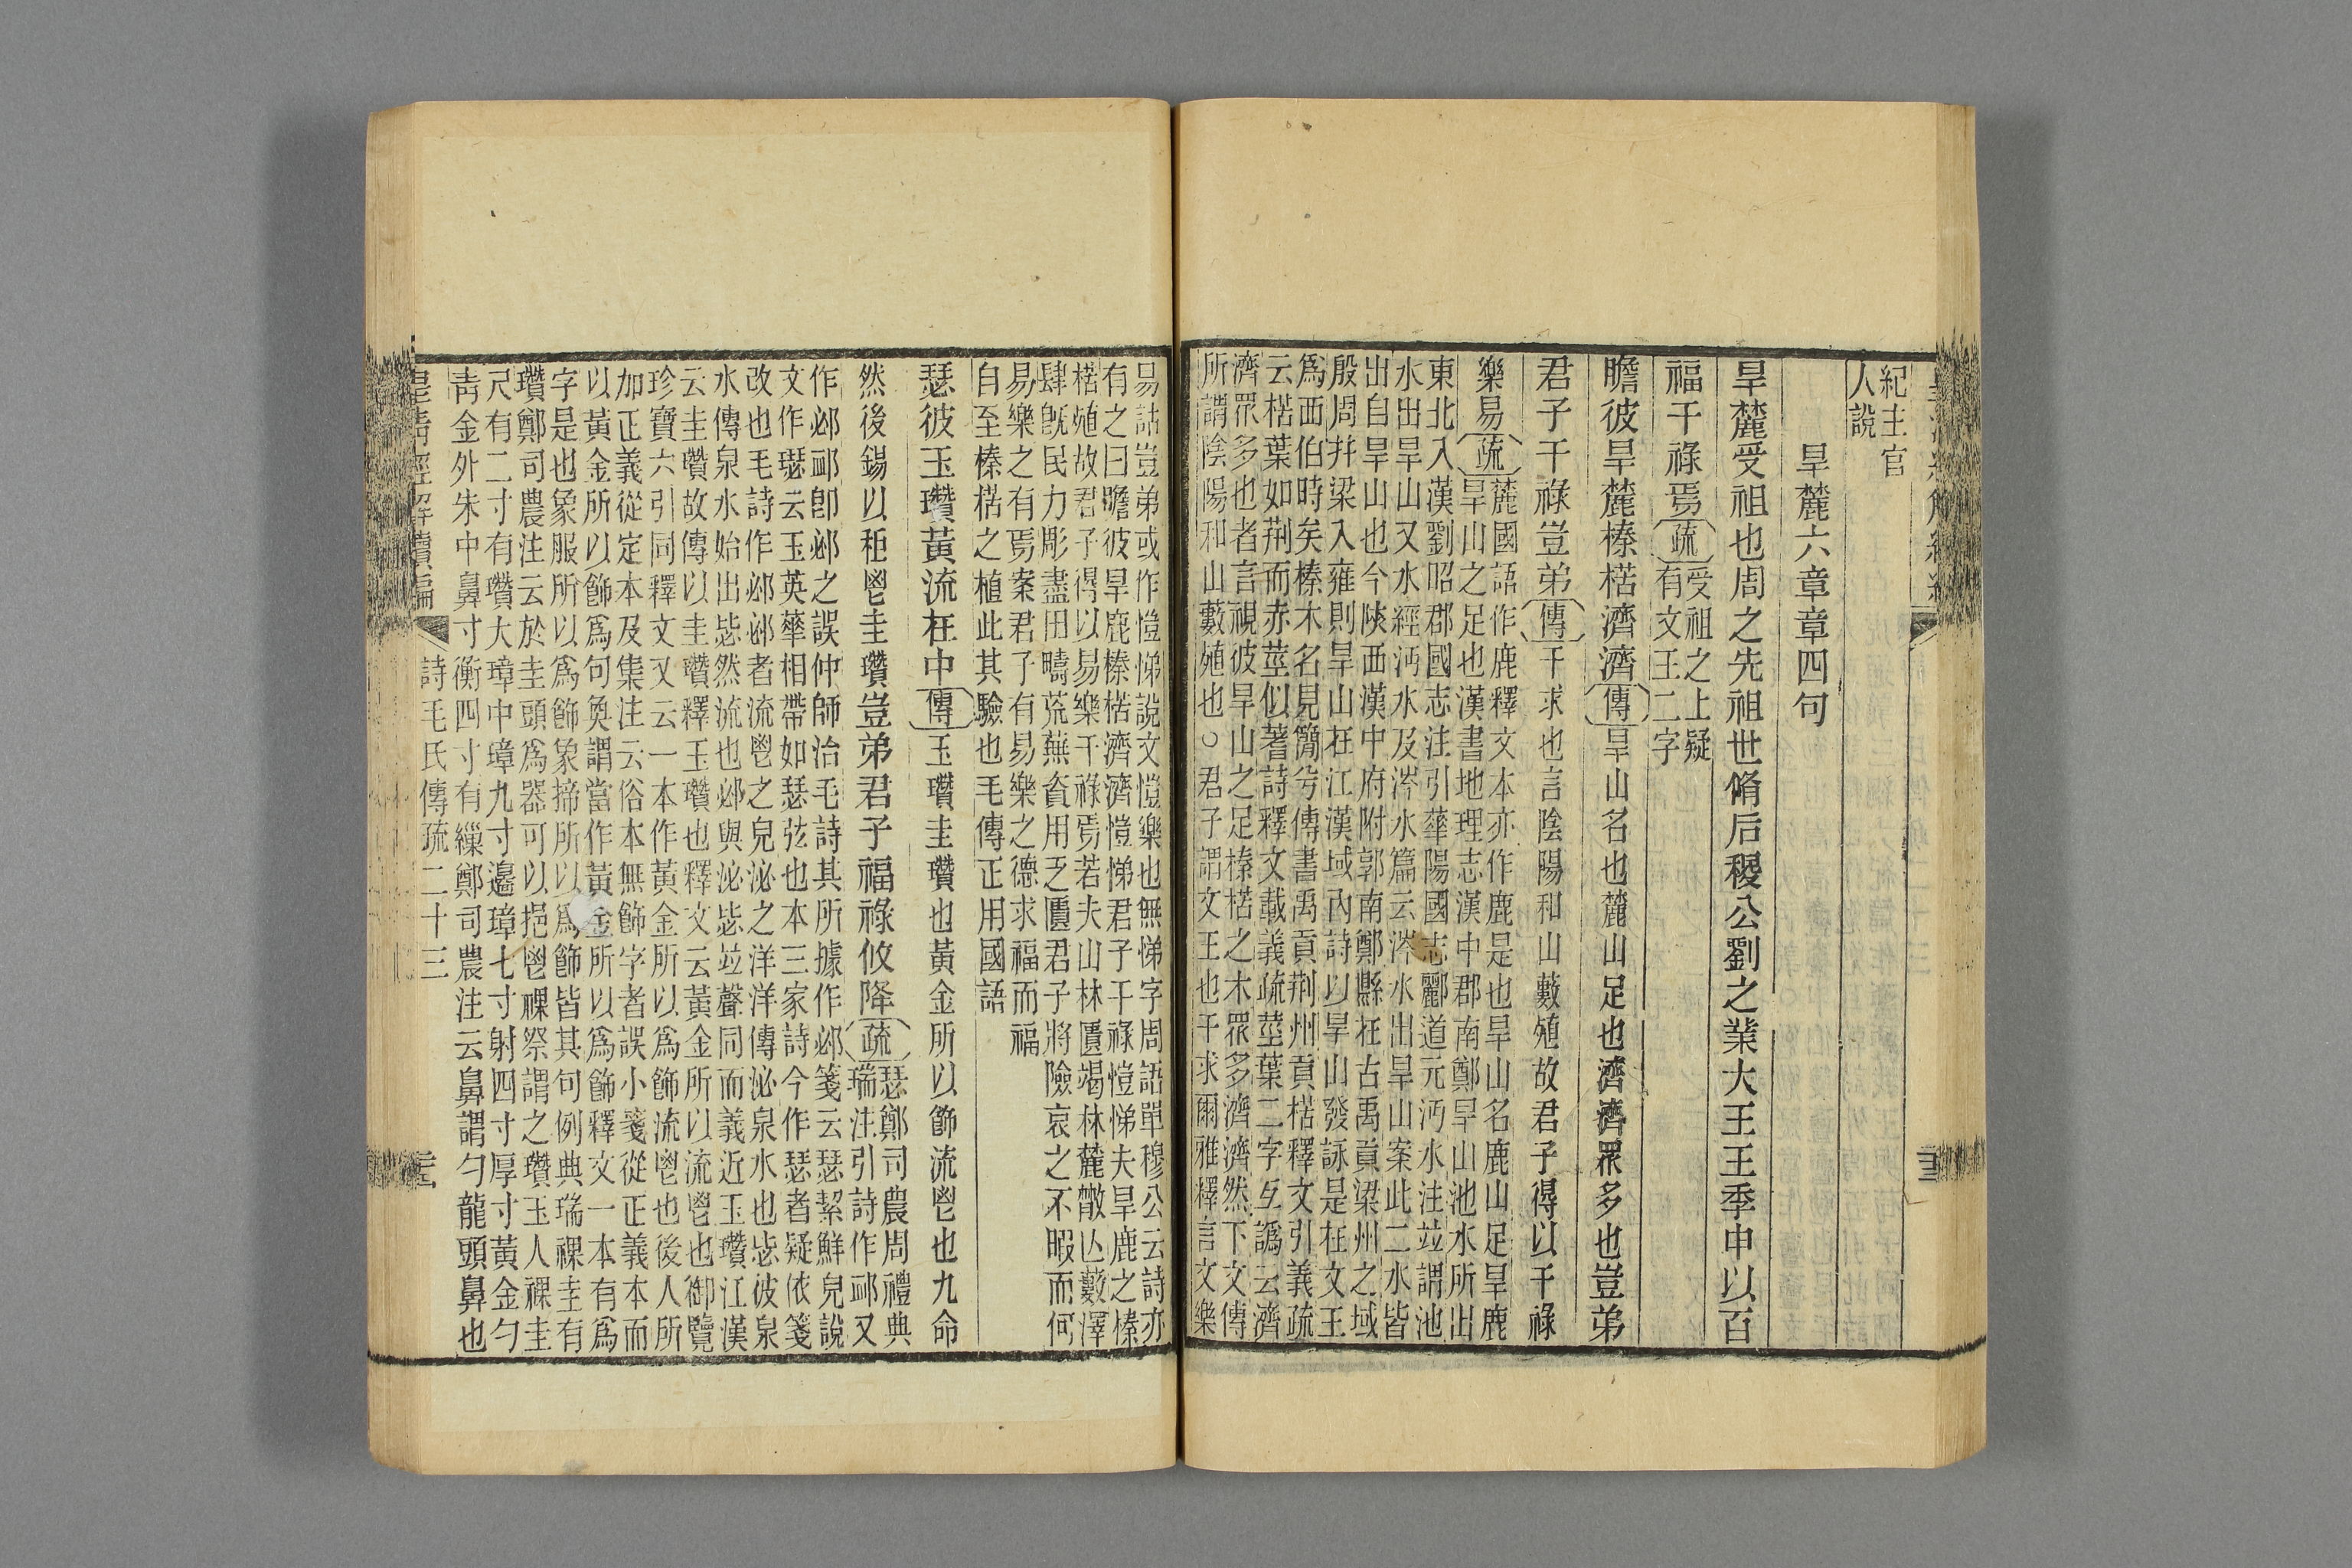 紀主官
人說
旱麓六章章四句
旱麓受祖也周之先祖世脩后稷公劉之業大王王季申以百
福干祿焉
疏
受祖之上疑
有文王二字
瞻彼旱麓榛楛濟濟
傳
旱山名也麓山足也濟濟眾多也豈弟
君子干祿豈弟
傳
干求也言陰陽和山藪殖故君子得以干祿
樂易
疏
麓國語作鹿釋文本亦作鹿是也旱山名鹿山足旱鹿
旱山之足也漢書地理志漢中郡南鄭旱山池水所出
東北入漢劉昭郡國志注引華陽國志酈道元沔水注竝謂池
水出旱山又水經沔水及涔水篇云涔水出旱山案此二水皆
出自旱山也今陝西漢中府附郭南鄭縣在古禹貢梁州之域
殷周幷梁入雍則旱山在江漢域內詩以旱山發詠是在文王
爲西伯時矣榛木名見簡兮傳書禹貢荆州貢楛釋文引義疏
云楛葉如荆而赤莖似蓍詩釋文載義疏莖葉二字互譌云濟
濟眾多也者言視彼旱山之足榛楛之木眾多濟濟然下文傳
所謂陰陽和山藪殖也○君子謂文王也干求爾雅釋言文樂
易詁豈弟或作愷悌說文愷樂也無悌字周語單穆公云詩亦
有之曰瞻彼旱鹿榛楛濟濟愷悌君子干祿愷悌夫旱鹿之榛
楛殖故君子得以易樂干祿焉若夫山林匱竭林麓散亾藪澤
肆旣民力彫盡田疇荒蕪資用乏匱君子將險哀之不暇而何
易樂之有焉案君子有易樂之德求福而福
自至榛楛之植此其驗也毛傳正用國語
瑟彼玉瓚黃流在中
傳
玉瓚圭瓚也黃金所以飾流鬯也九命
然後錫以秬鬯圭瓚豈弟君子福祿攸降
疏
瑟鄭司農周禮典
瑞注引詩作卹又
作邲卹卽邲之誤仲師治毛詩其所據作邲箋云瑟絜鮮皃說
文作璱云玉英華相帶如瑟弦也本三家詩今作瑟者疑依箋
改也毛詩作邲邲者流鬯之皃泌之洋洋傳泌泉水也毖彼泉
水傳泉水始出毖然流也邲與泌毖竝聲同而義近玉瓚江漢
云圭瓚故傳以圭瓚釋玉瓚也釋文云黃金所以流鬯也御覽
珍寶六引同釋文又云一本作黃金所以爲飾流鬯也後人所
加正義從定本及集注云俗本無飾字者誤小箋從正義本而
以黃金所以飾爲句奐謂當作黃金所以爲飾釋文一本有爲
字是也象服所以爲飾象揥所以爲飾皆其句例典瑞祼圭有
瓚鄭司農注云於圭頭爲器可以挹鬯祼祭謂之瓚玉人祼圭
尺有二寸有瓚大璋中璋九寸邊璋七寸射四寸厚寸黃金勺
靑金外朱中鼻寸衡四寸有繅鄭司農注云鼻謂勺龍頭鼻也
皇清經解續編
詩毛氏傳疏二十三